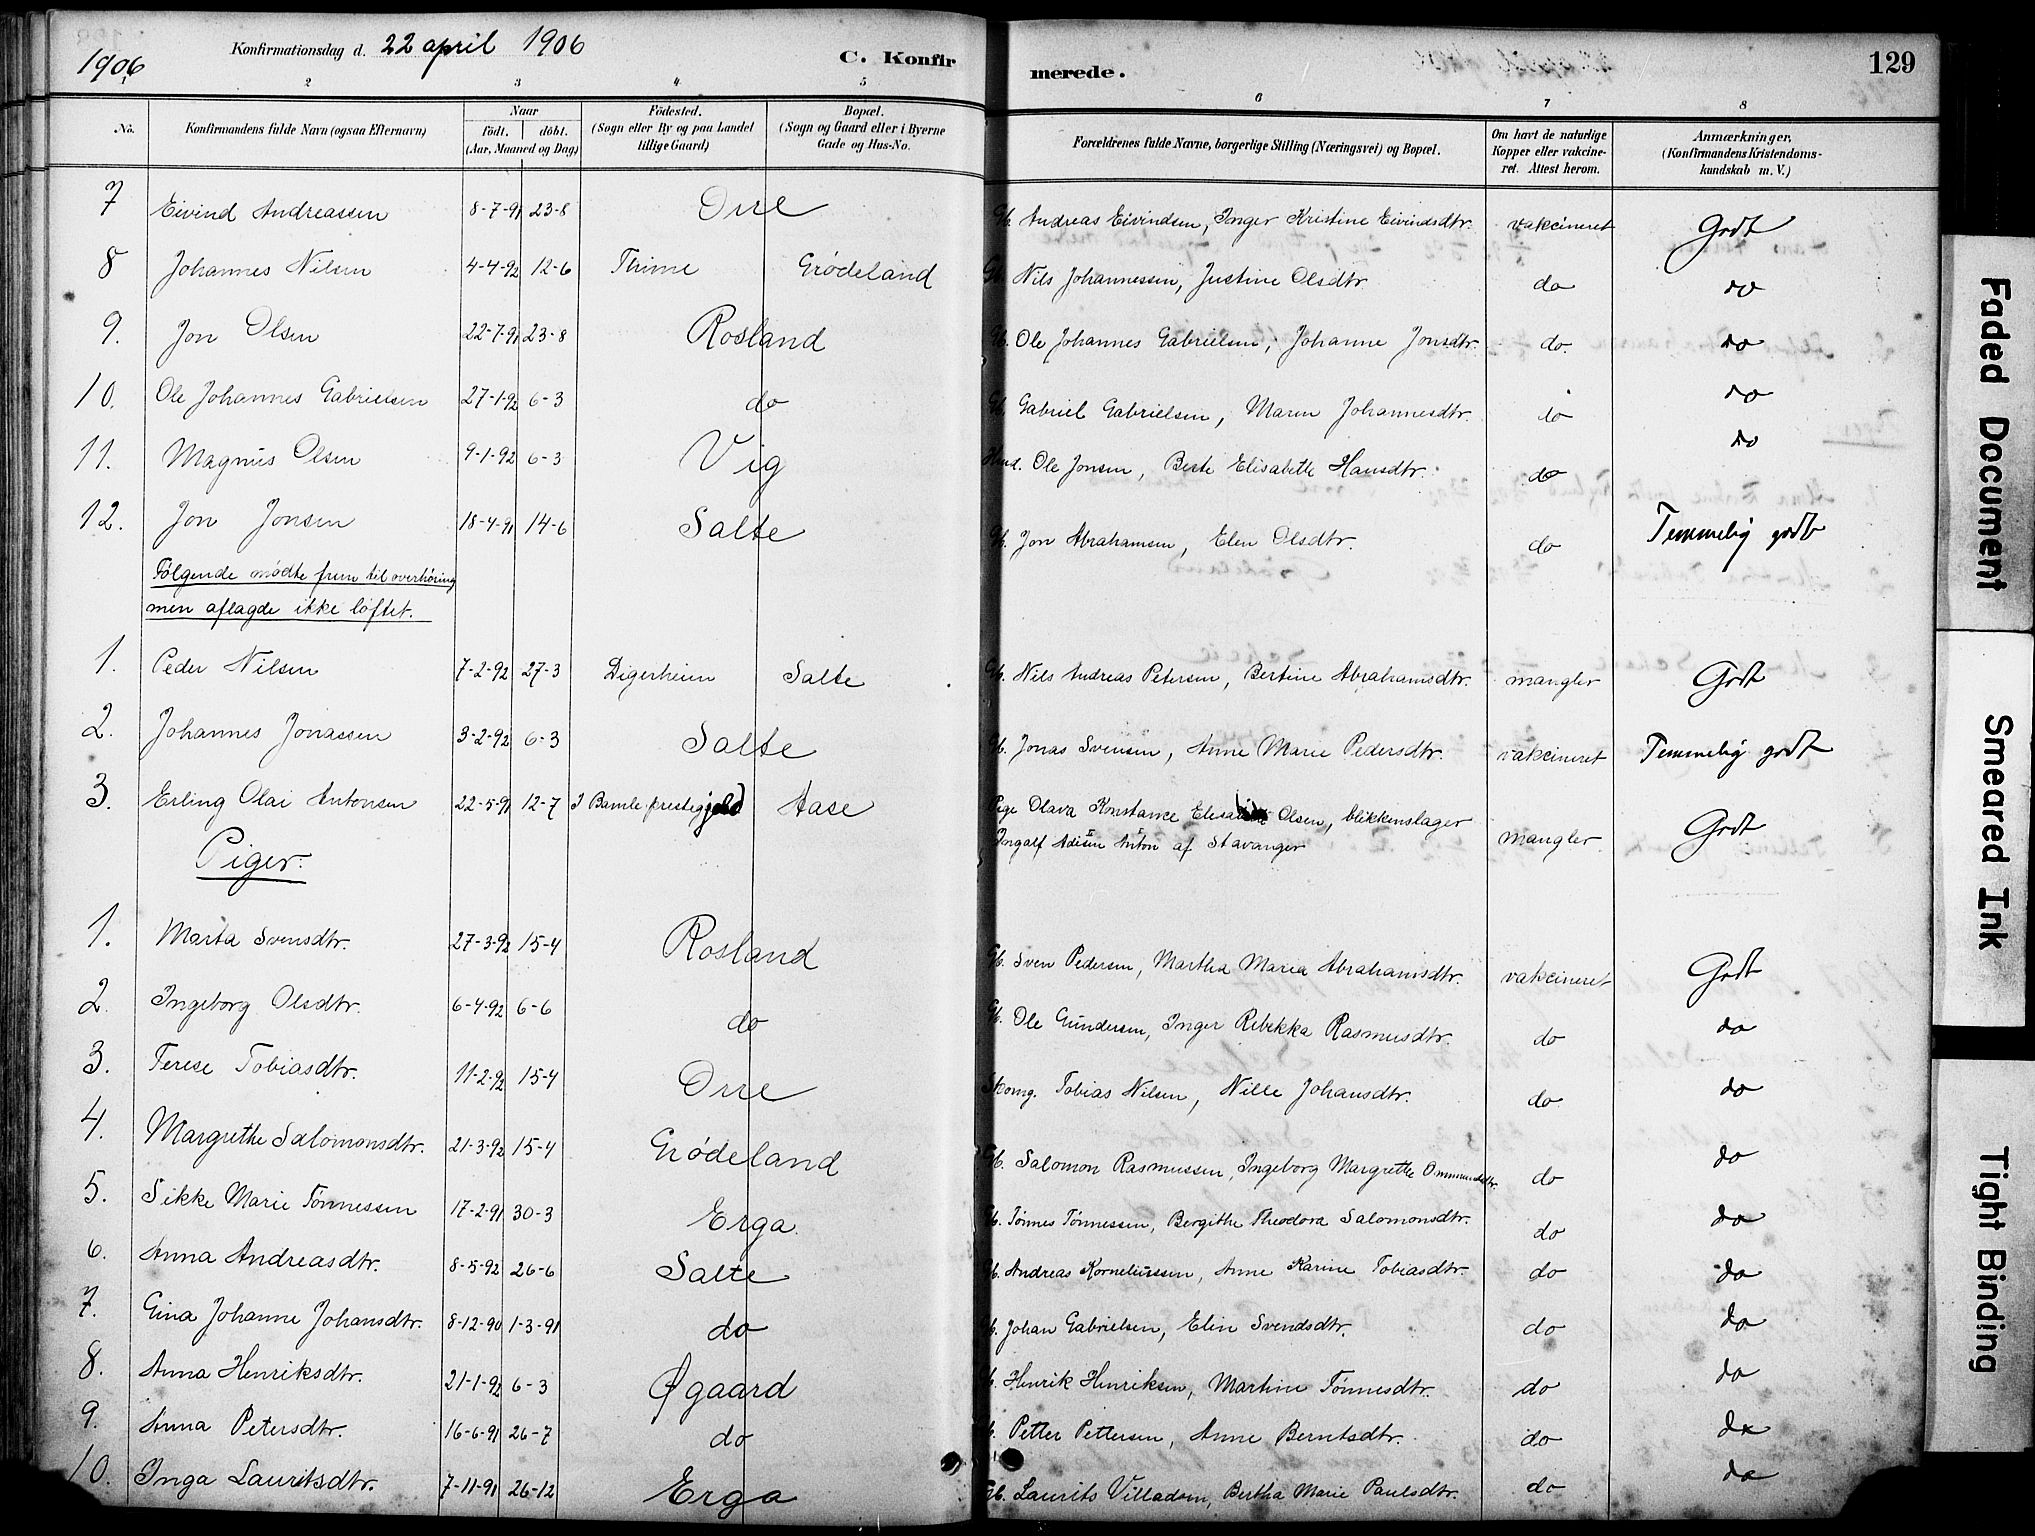 1906 Konfirmationsdag d. 22 april 1906 C. Konfirmerede. 129
1 2 3 4 5 6 7 8
No. Konfirmandens fulde Navn (ogsaa Efternavn) Naar födt. döbt. (Aar, Maaned og Dag) Födested. (Sogn eller By og paa Landet tillige Gaard) Bopæl. (Sogn og Gaard eller i Byerne Gade og Hus-No. Forældrenes fulde Navne, borgerlige Stilling (Næringsvei) og Bopæl. Om havt de naturlige Kopper eller vakcineret. Attest herom. Anmærkninger, (Konfirmandens Kristendomskundskab m. V.)
7 Eivind Andreassen 8-7-91 23-8 Orre Gb. Andreas Eivindsen, Inger Kristine Eivindsdtr. vakcineret Godt
8 Johannes Nilsen 4-4-92 12-6 Thime Grödeland Gb. Nils Johannessen, Justine Olsdtr. do do
9. Jon Olsen 22-7-91 23-8 Rosland Gb. Ole Johannes Gabrielsen, Johanne Jonsdtr. do. do
10. Ole Johannes Gabrielsen 27-1-92 6-3 do Gb. Gabriel Gabrielsen, Maren Johannesdtr. do do
11. Magnus Olsen 9-1-92 6-3 Vig Ole Jonsen, Berte Elisabeth Hansdtr. do do
12. Jon Jonsen 18-4-91 14-6 Salte Gb. Jon Abrahamsen, Elen Olsdtr. do Temmelig godt
Følgende mødte frem til overhøring
men aflagde ikke løftet.
1. Peder Nilsen 7-2-92 27-3 Digerheim Salte Gb. Nils Andreas Petersen, Bertine Abrahamsdtr. mangler Godt
2. Johannes Jonassen 3-2-92 6-3 Salte Gb. Jonas Svensen, Anne Marie Pedersdtr. vakcineret Temmelig godt
3. Erling Olai Antonsen 22-5-91 12-7 I Bamle prestegjeld Aase Pige Olava Konstance Olsen, blikkenslager
Ingalf Anton af Stavanger mangler. Godt
Piger.
1. Marta Svensdtr. 27-3-92 15-4 Rosland Gb. Sven Pedersen, Martha Maria Abrahamsdtr. vakcineret Godt
2. Ingeborg Olsdtr. 6-4-92 6-6 do Gb. Ole Gundersen, Inger Rebekka Rasmusdtr. do do
3. Terese Tobiasdtr. 11-2-92 15-4 Orre Skomg. Tobias Nilsen, Nille Johansdtr. do do
4. Margrethe Salomonsdtr. 21-3-92 15-4 Grödeland Gb. Salomon Rasmussen, Ingeborg Margrethe Ommundsdtr. do do
5. Sikke Marie Tønnessen 17-2-91 30-3 Erga. Gb. Tønnes Tønnessen, Bergithe Theodora Salomonsdtr. do do
6. Anna Andreasdtr. 8-5-92 26-6 Salte Gb. Andreas Korneliussen, Anne Karine Tobiasdtr. do do
7. Gina Johanne Johansdtr. 8-12-90 1-3-91 do Gb. Johan Gabrielsen, Elin Svendsdtr. do do
8. Anna Henriksdtr. 21-1-92 6-3 Øgaard Gb. Henrik Henriksen, Martine Tønnesdtr. do do
9. Anna Petersdtr. 16-6-91 26-7 do Gb. Petter Pettersen, Anne Berntsdtr. do do
10. Inga Lauritsdtr. 7-11-91 26-12 Erga Gb. Laurits Villadsen, Bertha Marie Paulsdtr. do do
Faded Document
Smeared Ink
Tight Binding